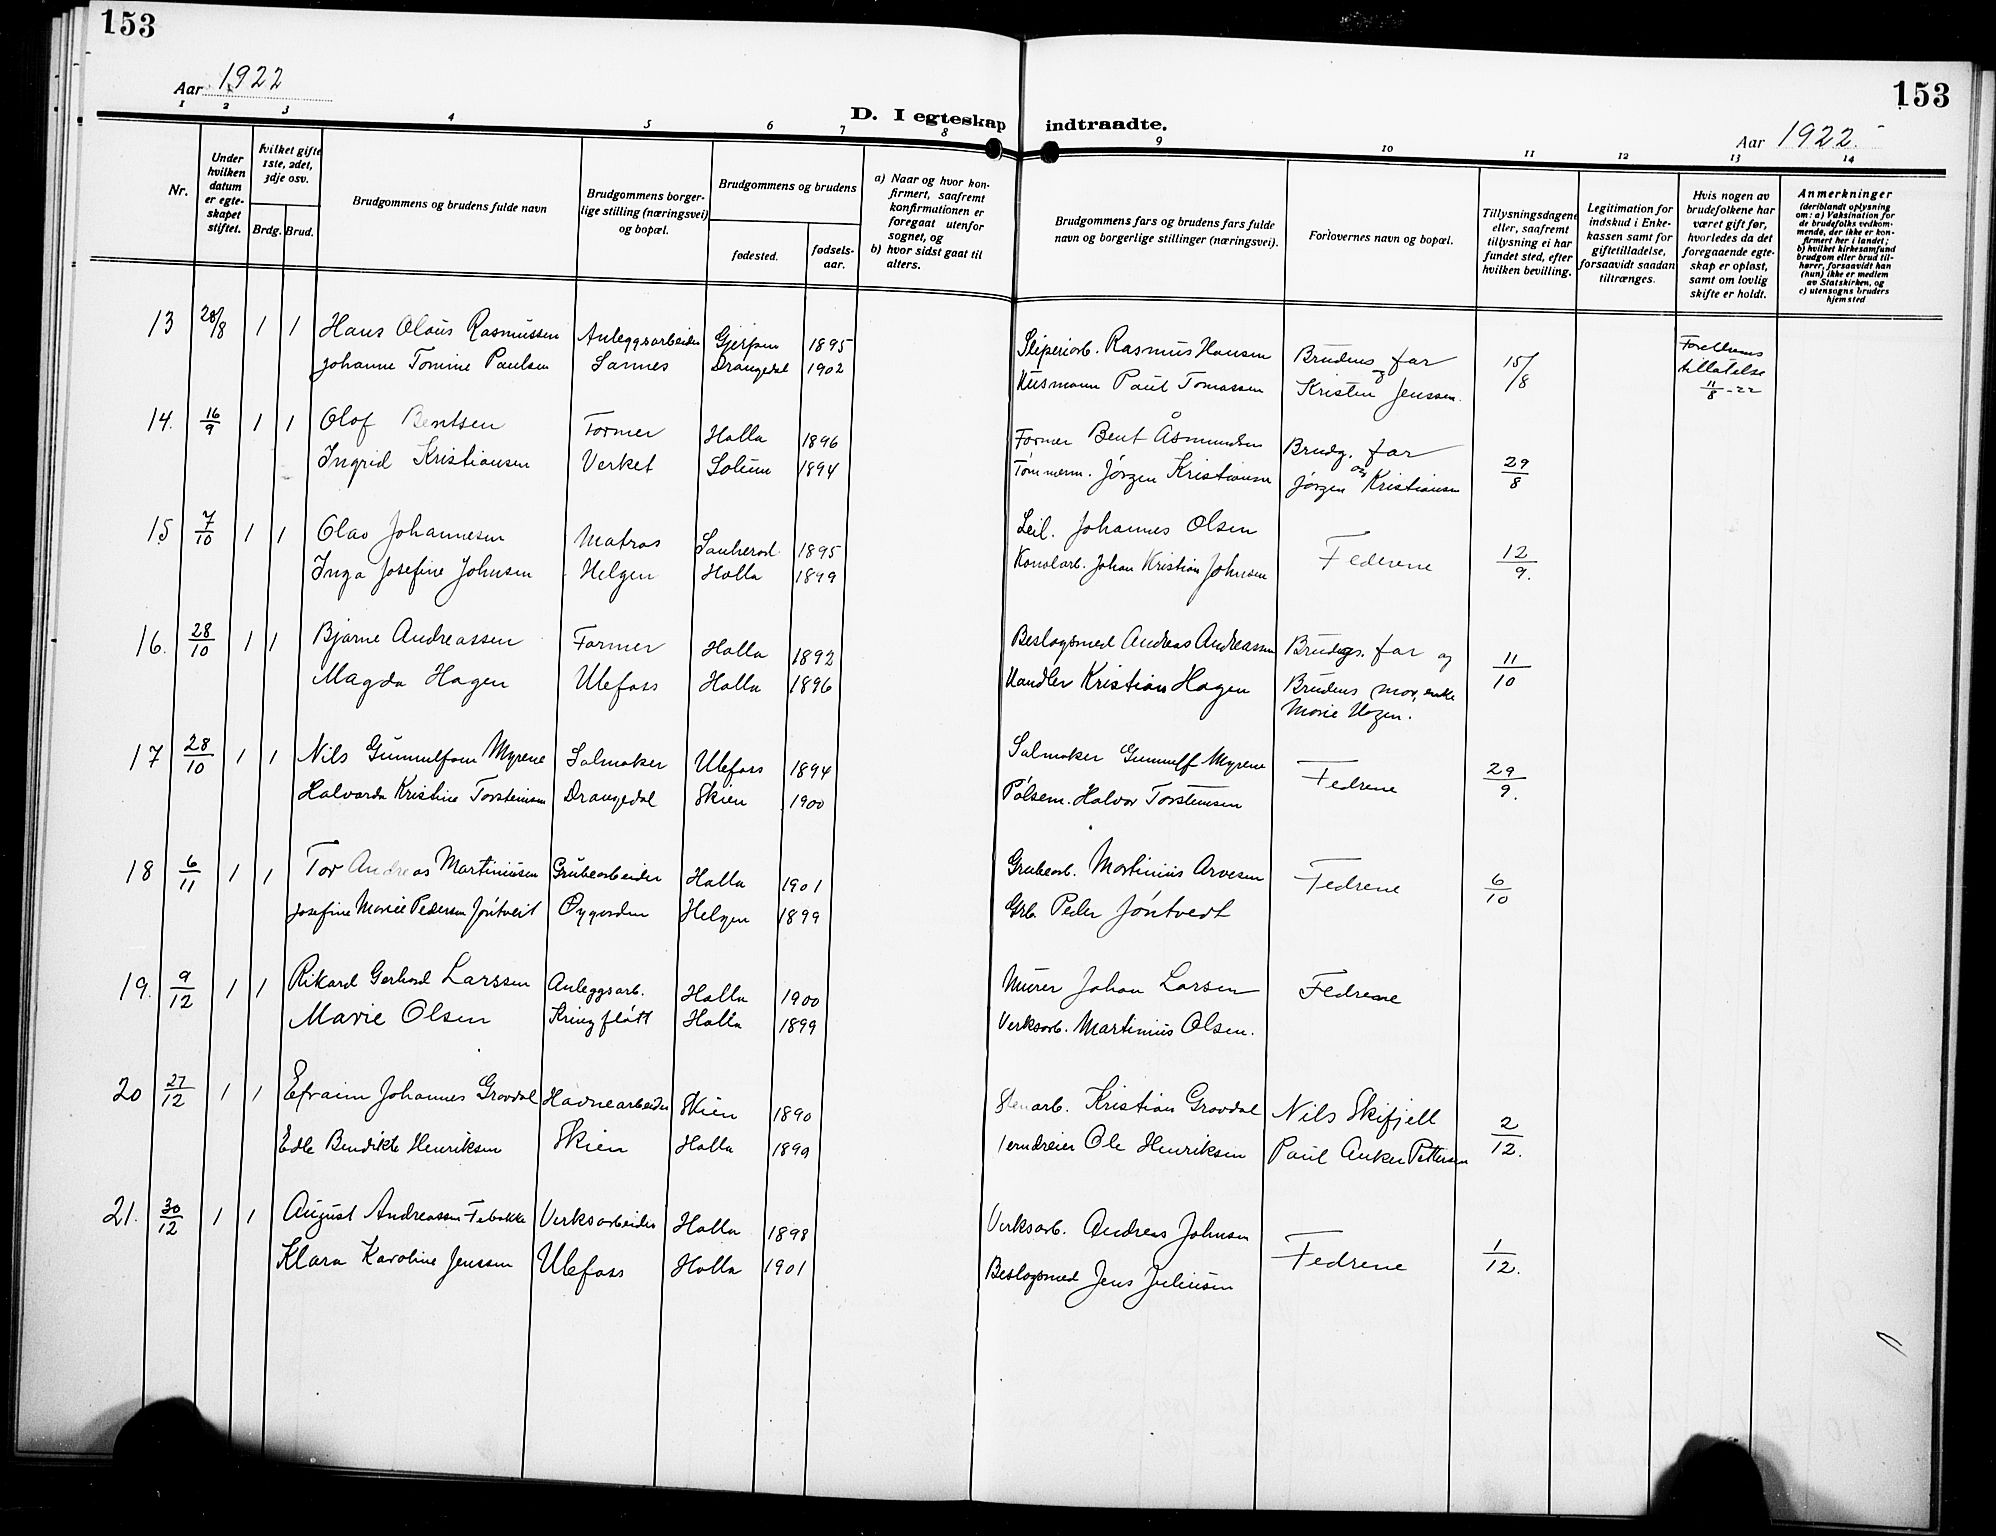 153
153
Aar 1922
Aar 1922.
D. I egteskap indtraadte.
1 2 3 4 5 6 7 8 9 10 11 12 13 14
Nr.
Under hvilken datum er egteskapet stiftet.
Hvilket gifte 1ste, 2det, 3dje osv.
Brdg. Brud.
Brudgommens og brudens fulde navn
Brudgommens borgerlige stilling (næringsvei) og bopæl.
Brudgommens og brudens
fødested.
fødselsaar.
a) Naar og hvor konfirmert, saafremt konfirmationen er foregaat utenfor sognet, og
b) hvor sidst gaat til alters.
Brudgommens fars og brudens fars fulde navn og borgerlige stillinger (næringsvei).
Forlovernes navn og bopæl.
Tillysningsdagene eller, saafremt tillysning ei har fundet sted, efter hvilken bevilling.
Legitimation for indskud i Enkekassen samt for giftetilladelse, forsaavidt saadan tiltrænges.
Hvis nogen av brudefolkene har været gift før, hvorledes da det foregaaende egteskap er opløst, samt om lovlig skifte er holdt.
Anmerkninger
(deriblandt oplysning om: a) Vaksination for de brudefolks vedkommende, der ikke er konfirmert her i landet; b) hvilket kirkesamfund brudgom eller brud tilhører, forsaavidt han (hun) ikke er medlem av Statskirken, og c) utensogns bruders hjemsted
13 28/8 1 1 Hans Olaus Rasmussen Anleggsarbeider Gjerpen 1895 Sliperiarb. Rasmus Hansen Brudens far og 15/8 Foreldrenes
Johanne Tomine Paulsen Sannes Drangedal 1902 Husmann Paul Tomassen Kristen Jenssen. tillatelse 11/8-22
14. 16/9 1 1 Olof Bentsen Former Holla 1896 Former Bent Åsmundsen Brudg. far og 29/8
Ingrid Kristiansen Verket Solum 1894 Tømmerm. Jørgen Kristiansen Jørgen Kristiansen
15 7/10 1 1 Olav Johannesen Matros Sauherad 1895 Leil. Johannes Olsen Federene 12/9.
Inga Josefine Johnsen Helgen Holla 1899 Kanalarb. Johan Kristian Johnsen
16. 28/10 1 1 Bjarne Andreassen Former Holla 1892 Beslagsmed Andreas Andreassen Brudgs. far og 11/10
Magda Hagen Ulefoss Holla 1896 Handler Kristian Hagen Brudens mor, enke
Marie Hagen.
17 28/10 1 1 Nils Gunnulfson Myrene Salmaker Ulefoss 1894 Salmaker Gunnulf Myrene Fedrene 29/9.
Halvarda Kristine Torsteinsen Drangedal Skien 1900 Pølsem. Halvor Torsteinsen
18 6/11 1 1 Tor Andreas Martiniusen Grubearbeider Holla 1901 Grubearb. Martinius Arvesen Fedrene 6/10
Josefine Marie Pedersen Jøntvedt Øygarden Helgen 1899 Grb. Peder Jøntvedt
19. 9/12 1 1 Rikard Gerhard Larssen Anleggsarb. Holla 1900 Murer Johan Larsen Fedrene
Marie Olsen Kringflått Holla 1899 Verksarb. Martinius Olsen.
20 27/12 1 1 Efraim Johannes Grovdal Havnearbeider Skien 1890 Stenarb. Kristian Grovdal Nils Skifjell 2/12.
Edle Bendikte Henriksen Skien Holla 1899 Jerndreier Ole Henriksen Paul Anker Pettersen
21. 30/12 1 1 August Andreassen Febakke Verksarbeider Holla 1898 Verksarb. Andreas Johnsen Fedrene 1/12.
Klara Karoline Jenssen Ulefoss Holla 1901 Beslagsmed Jens Juliusen